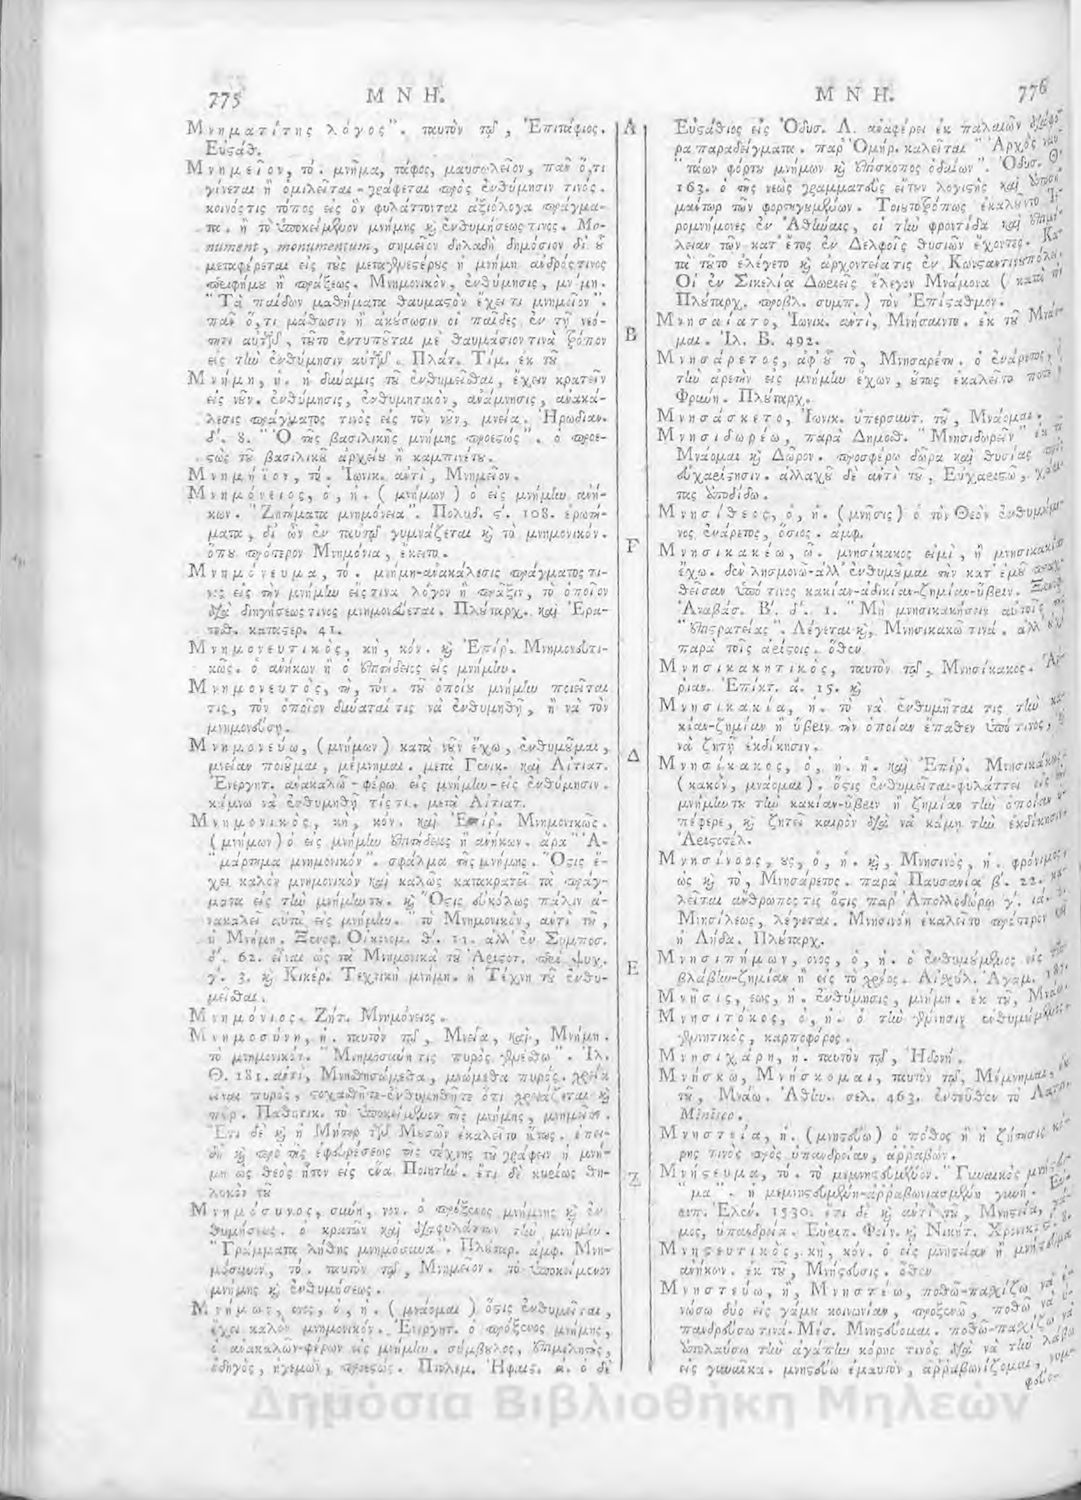 775 ΜΝΗ.
Μνηματίτης λόγος". ταυτὸν τῷ, Ἐπιτάφιος.
Εὐσάθ.
Μνημεῖον, τό. μνῆμα, τάφος, μαυσωλεῖον, πᾶν ὅ,τι
γίνεται ἢ ὁμιλεῖται - γράφεται πρὸς ἐνθύμησιν τινός.
κοινός τις τόπος εἰς ὃν φυλάττονται ἀξιόλογα πράγμα-
τα. ἢ τὸ ὑποκείμενον μνήμης καὶ ἐνθυμήσεως τινος. Mo-
nument, monumentum, σημεῖον δηλαδὴ δημόσιον δι' οὗ
μεταφέρεται εἰς τοὺς μεταγενεστέρους ἡ μνήμη ἀνδρός τινος
περιφήμου ἢ πράξεως. Μνημονικόν, ἐνθύμησις, μνήμη.
"Τὰ παίδων μαθήματα θαυμαστὸν ἔχει τι μνημεῖον".
πᾶν ὅ,τι μάθωσιν ἢ ἀκούσωσιν οἱ παῖδες ἐν τῇ νεό-
τητι αὐτῶν, τοῦτο ἐντυποῦται μὲ θαυμάσιόν τινα τρόπον
εἰς τὴν ἐνθύμησιν αὐτῶν. Πλάτ. Τίμ. ἐκ τοῦ
Μνήμη, ἡ. ἡ δύναμις τοῦ ἐνθυμεῖσθαι, ἔχειν κρατεῖν
εἰς νοῦν. ἐνθύμησις, ἐνθυμητικόν, ἀνάμνησις, ἀνακά-
λεσις πράγματος τινὸς εἰς τὸν νοῦν, μνεία. Ἡρωδιαν.
δ'. 8. "Ὁ τῆς βασιλικῆς μνήμης προεστώς". ὁ προε-
στὼς τοῦ βασιλικοῦ ἀρχείου ἢ καμπινέτου.
Μνημήϊον, τό. Ἰωνικ. ἀντί, Μνημεῖον.
Μνημόνειος, ὁ, ἡ. (μνήμων) ὁ εἰς μνήμην ἀνή-
κων. "Ζητήματα μνημόνεια". Πολυδ. ϛ'. 108. ἐρωτή-
ματα, δι' ὧν ἐν ταυτῷ γυμνάζεται καὶ τὸ μνημονικόν.
ὅπου πρότερον Μνημόνια, ἔκειτο.
Μνημόνευμα, τό. μνήμη-ἀνακάλεσις πράγματος τι-
νὸς εἰς τὴν μνήμην εἴς τινα λόγον ἢ πρᾶξιν, τὸ ὁποῖον
διὰ διηγήσεως τινος μνημονεύεται. Πλούταρχ. καὶ Ἐρα-
τοσθ. καταστερ. 41.
Μνημονευτικός, κή, κόν. καὶ Ἐπίρ. Μνημονευτι-
κῶς. ὁ ἀνήκων ἢ ὁ ἐπιτήδειος εἰς μνήμην.
Μνημονευτός, τή, τόν. τοῦ ὁποίου μνήμην ποιεῖται
τις, τὸν ὁποῖον δύναταί τις νὰ ἐνθυμηθῇ, ἢ νὰ τὸν
μνημονεύσῃ.
Μνημονεύω, (μνήμων) κατὰ νοῦν ἔχω, ἐνθυμοῦμαι,
μνείαν ποιοῦμαι, μέμνημαι. μετὰ Γενικ. καὶ Αἰτιατ.
Ἐνεργητ. ἀνακαλῶ-φέρω εἰς μνήμην-εἰς ἐνθύμησιν.
κάμνω νὰ ἐνθυμηθῇ τίς τι. μετὰ Αἰτιατ.
Μνημονικός, κή, κόν. καὶ Ἐπίρ. Μνημονικῶς.
(μνήμων) ὁ εἰς μνήμην ἐπιτήδειος ἢ ἀνήκων. ἄρα "Ἁ-
"μάρτημα μνημονικόν". σφάλμα τῆς μνήμης. Ὅστις ἔ-
χει καλὸν μνημονικὸν καὶ καλῶς κατακρατεῖ τὰ πράγ-
ματα εἰς τὴν μνήμην του. καὶ Ὅστις εὐκόλως πάλιν ἀ-
νακαλεῖ αὐτὰ εἰς μνήμην. τὸ Μνημονικόν, ἀντὶ τοῦ,
ἡ Μνήμη. Ξενοφ. Οἰκονομ. θ'. 11. ἀλλ' ἐν Συμποσ.
δ'. 62. εἶναι ὡς τὰ Μνημονικὰ τοῦ Ἀριστοτ. περὶ Ψυχ.
γ'. 3. καὶ Κικέρ. Τεχνικὴ μνήμη. ἡ Τέχνη τοῦ ἐνθυ-
μεῖσθαι.
Μνημόνιος. Ζήτ. Μνημόνειος.
Μνημοσύνη, ἡ. ταυτὸν τῷ, Μνεία, καί, Μνήμη.
τὸ μνημονικόν. "Μνημοσύνη τις πυρὸς γενέσθω". Ἰλ.
Θ. 181. ἀντί, Μνησθησώμεθα,
Ἔτι δὲ καὶ ἡ Μήτηρ τῶν Μουσῶν ἐκαλεῖτο οὕτως. ἐπει-
δὴ καὶ πρὸ τῆς ἐφευρέσεως τῆς τέχνης τοῦ γράφειν ἡ μνή-
μη ὡς θεὸς ἦτον εἰς ἕνα Ποιητήν. ἔτι δὲ κυρίως θη-
λυκὸν τοῦ
Μνημόσυνος,
"Γράμματα λήθης μνημόσυνα". Πλούταρ. ἀμφ. Μνη-
μόσυνον, τό. ταυτὸν τῷ, Μνημεῖον. τὸ ὑποκείμενον
μνήμης καὶ ἐνθυμήσεως.
Μνήμων, ονος, ὁ, ἡ. (μνάομαι) ὅστις ἐνθυμεῖται,
ἔχει καλὸν μνημονικόν. Ἐνεργητ. ὁ πρόξενος μνήμης,
ὁ ἀνακαλῶν-φέρων εἰς μνήμην. σύμβουλος, ἐπιμελητής,
ὁδηγός, ἡγεμών, προεστώς. Πτολεμ. Ἡφαιστ. ά. ὁ δὲ
Α
Β
Γ
Δ
Ε
Ζ
ΜΝΗ. 776
Εὐστάθιος εἰς Ὀδυσ. Λ. ἀναφέρει ἐκ παλαιῶν διάφο-
ρα παραδείγματα. παρ' Ὁμήρ. καλεῖται "Ἀρχὸς ναυ-
"τάων φόρτου μνήμων καὶ ἐπίσκοπος ὁδαίων". Ὀδυσ. Θ.
163. ὁ τῆς νεὼς γραμματεὺς εἴτουν λογιστὴς καὶ
Οἱ ἐν Σικελίᾳ Δωριεῖς ἔλεγον Μνάμονα (κατὰ τὸν
Πλούταρχ. προβλ. συμπ.) τὸν Ἐπίσταθμον.
Μνησαίατο, Ἰωνικ. ἀντί, Μνήσαιντο. ἐκ τοῦ Μνάο-
μαι. Ἰλ. Β. 492.
Μνησάρετος, ἀφ' οὗ τό, Μνησαρέτη. ὁ ἐνάρετος,
τὴν ἀρετὴν εἰς μνήμην ἔχων, οὕτως ἐκαλεῖτο ποτὲ
Φρύνη. Πλούταρχ.
Μνησάσκετο, Ἰωνικ. ὑπερσυντ. τοῦ, Μνάομαι.
Μνησιδωρέω, παρὰ Δημοσθ. "Μνησιδωρεῖν" ἐκ τοῦ
Μνάομαι καὶ Δῶρον. προσφέρω δῶρα καὶ θυσίας πρὸς
εὐχαρίστησιν. ἀλλαχοῦ δὲ ἀντὶ τοῦ, Εὐχαριστῶ, χάρι-
τας ἀποδίδω.
Μνησίθεος, ὁ, ἡ. (μνῆσις) ὁ τὸν Θεὸν ἐνθυμούμε-
νος, ἐνάρετος, ὅσιος. ἀμφ.
Μνησικακέω, ῶ. μνησίκακος εἰμί, ἢ μνησικακίαν
ἔχω. δὲν λησμονῶ-ἀλλ' ἐνθυμοῦμαι τὴν κατ' ἐμοῦ πραχ-
θεῖσαν ὑπό τινος κακίαν-ἀδικίαν-ζημίαν-ὕβριν. Ξενοφ.
Ἀναβάσ. Β'. δ'. 1. "Μὴ μνησικακήσειν αὐτοῖς τῆς
"ἐπιστρατείας". Λέγεται καί, Μνησικακῶ τινά. ἀλλ' οὐ
παρὰ τοῖς ἀρίστοις. ὅθεν
Μνησικακητικός, ταυτὸν τῷ, Μνησίκακος. Ἀρ-
ριαν. Ἐπίκτ. ά. 15. καὶ
Μνησικακία, ἡ. τὸ νὰ ἐνθυμῆται τις τὴν κα-
κίαν-ζημίαν ἢ ὕβριν τὴν ὁποίαν ἔπαθεν ὑπό τινος,
νὰ ζητῇ ἐκδίκησιν.
Μνησίκακος, ὁ, ἡ. ἡ. καὶ Ἐπίρ. Μνησικάκως.
(κακόν, μνάομαι). ὅστις ἐνθυμεῖται-φυλάττει εἰς τὴν
μνήμην του τὴν κακίαν-ὕβριν ἢ ζημίαν τὴν ὁποίαν
πέφερε, καὶ ζητεῖ καιρὸν διὰ νὰ κάμῃ τὴν ἐκδίκησιν.
Ἀριστοτέλ.
Μνησίνοος, ους, ὁ, ἡ. καί, Μνησινός, ἡ. φρόνιμος,
ὡς καὶ τό, Μνησάρετος. παρὰ Παυσανίᾳ β'. 22. κα-
λεῖται ἄνθρωπός τις ὅστις παρ' Ἀπολλοδώρῳ γ'. ιά.
Μνησίλεως, λέγεται. Μνησινόη ἐκαλεῖτο πρότερον καὶ
ἡ Λήδα. Πλούταρχ.
Μνησιπήμων, ονος, ὁ, ἡ. ὁ ἐνθυμούμενος εἰς τὴν
βλάβην-ζημίαν ἢ εἰς τὸ χρέος. Αἰσχύλ. Ἀγαμ. 187.
Μνῆσις, εως, ἡ. ἐνθύμησις, μνήμη. ἐκ τοῦ, Μνάω.
Μνησιτόκος, ὁ, ἡ. ὁ τὴν γέννησιν ἐνθυμούμενος.
γεννητικός, καρποφόρος.
Μνησιχάρη, ἡ. ταυτὸν τῷ, Ἡδονή.
Μνήσκω, Μνήσκομαι, ταυτὸν τῷ, Μέμνημαι, ἐκ
τοῦ, Μνάω. Ἀθήν. σελ. 463. ἐντεῦθεν τὸ Λατιν.
Minisco.
Μνηστεία, ἡ. (μνηστεύω) ὁ πόθος ἢ ἡ ζήτησις κό-
ρης τινὸς πρὸς ὑπανδρείαν, ἀρραβών.
Μνήστευμα, τό. τὸ μεμνηστευμένον. "Γυναικὸς μνήστευ-
"μα". ἡ μεμνηστευμένη-ἀρραβωνιασμένη γυνή. Εὐ-
ριπ. Ἑλέν. 1530. ἔτι δὲ καὶ ἀντὶ τοῦ, Μνηστεία, γά-
μος, ὑπανδρεία. Εὐριπ. Φοίν. καὶ Νικήτ. Χρονικ.
Μνηστευτικός, κή, κόν. ὁ εἰς μνηστείαν ἢ μνήστευμα
ἀνήκων. ἐκ τοῦ, Μνήστευσις. ὅθεν
Μνηστεύω, ἤ, Μνηστέω, ποθῶ-πασχίζω νὰ ἑ-
νώσω δύο εἰς γάμου κοινωνίαν, προξενῶ, ποθῶ νὰ ὑ-
πανδρεύσω τινά. Μέσ. Μνηστεύομαι. ποθῶ-πασχίζω νὰ
ἀπολαύσω τὴν ἀγάπην κόρης τινὸς διὰ νὰ τὴν λάβω
εἰς γυναῖκα. μνηστεύω ἐμαυτόν, ἀρραβωνίζομαι, νυμ-
φεύο-
Δημόσια Βιβλιοθήκη Μηλεών